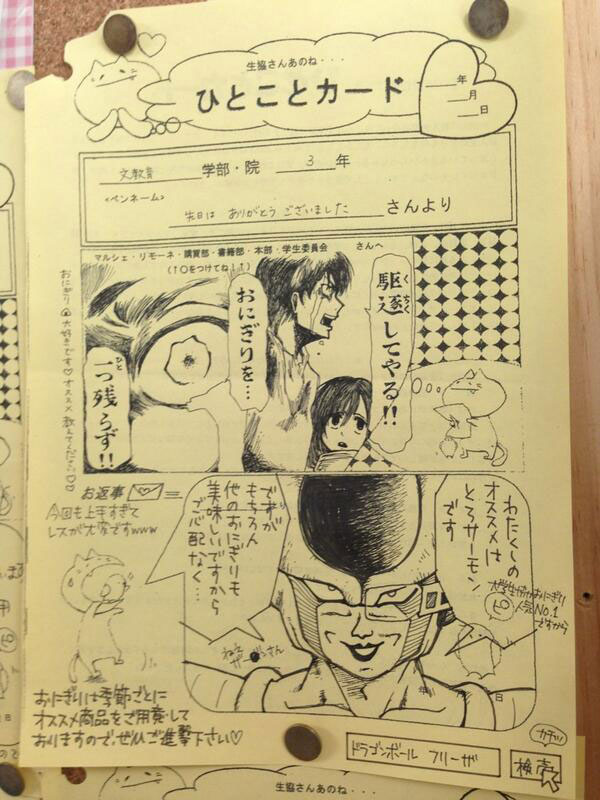 生協さんあのね・・・
ひとことカード
年
月
日
文教育 学部・院 3 年
<ペンネーム>
先日は ありがとう ございました さんより
マルシェ・リモーネ・購買部・書籍部・本部・学生委員会 さんへ
(↑○をつけてね！↑)
駆逐してやる!!
くちく
おにぎりを…
一つ残らず!!
ひと
おにぎり 大好きです♡オススメ 教えてください♡♡
お返事
今回も上手すぎて
レスが大変ですwww
わたくしの
オススメは
とろサーモン
です
大学生協おにぎり
人気No.1
ですから
ですが
もちろん
他のおにぎりも
美味しいですから
ご心配なく…
ねえ
ザーボンさん
年
日
おにぎりは季節ごとに
オススメ商品をご用意して
おりますので、ぜひご進撃下さい♡
ドラゴンボール フリーザ
検索
カチッ
生協さんあのね・・・